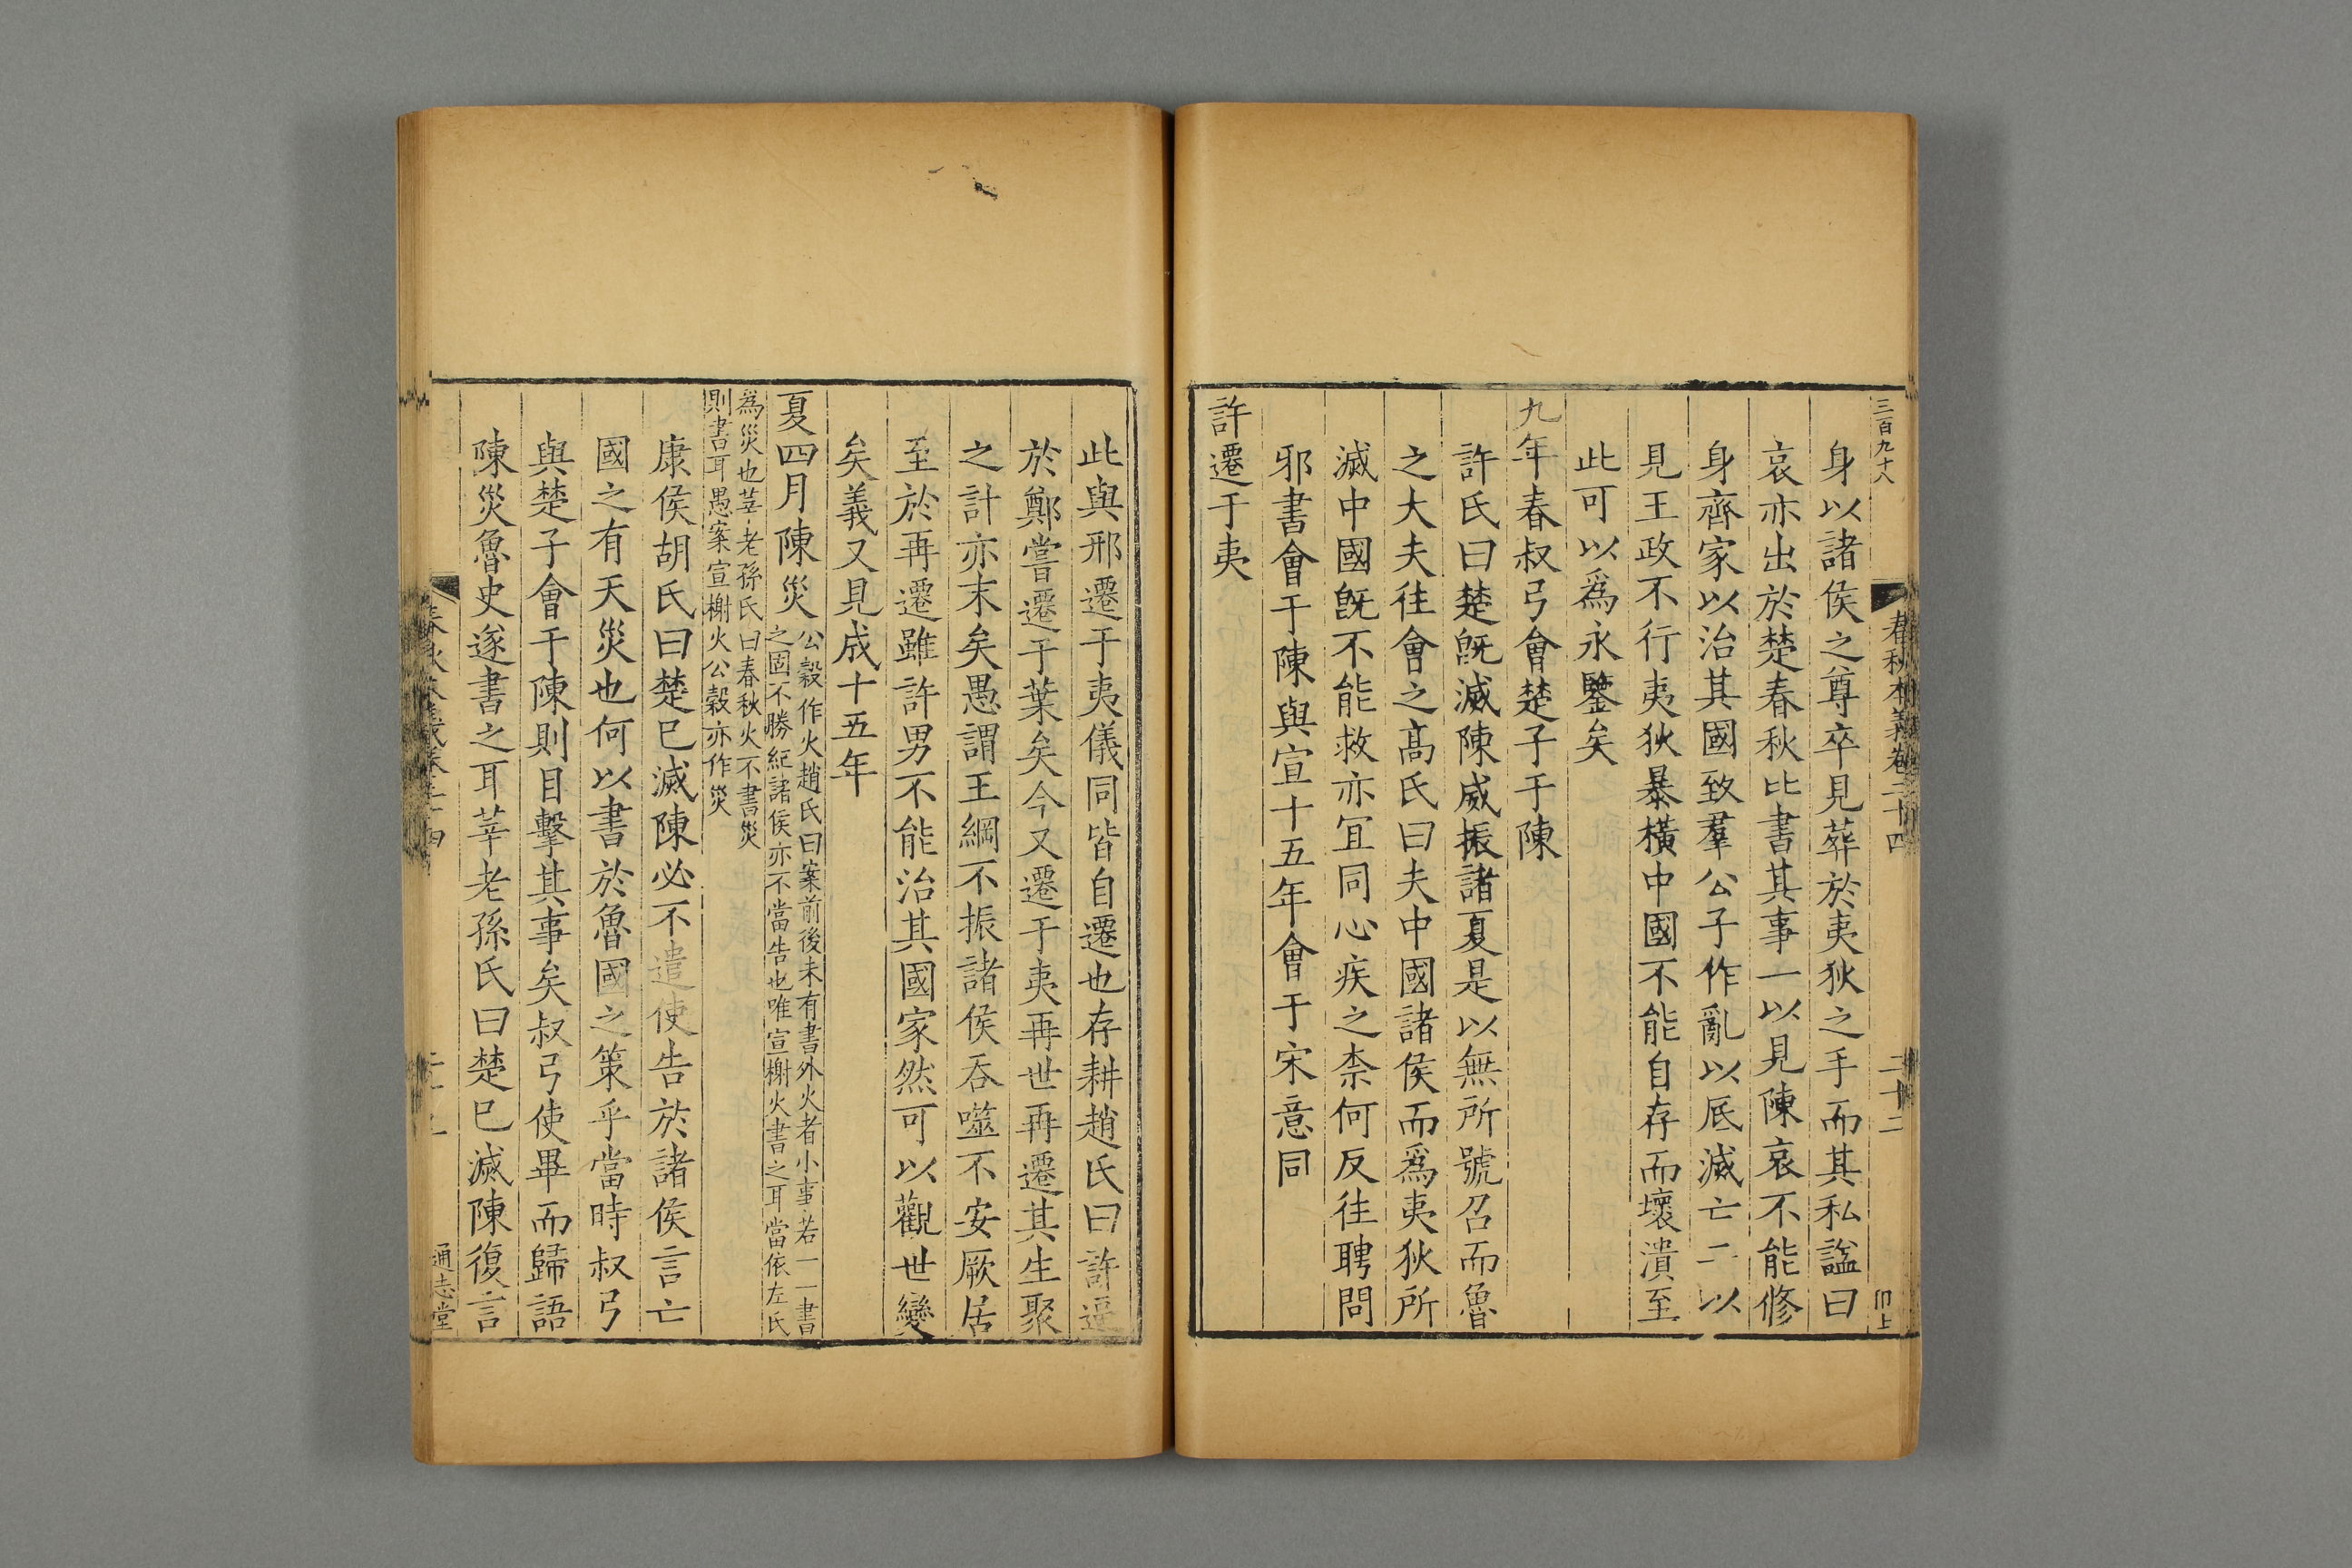 三百九十八
春秋本義卷二十四
二十二
身以諸侯之尊卒見葬於夷狄之手而其私諡曰
哀亦出於楚春秋比書其事一以見陳哀不能修
身齊家以治其國致羣公子作亂以底滅亡二以
見王政不行夷狄暴橫中國不能自存而壞潰至
此可以爲永鑒矣
九年春叔弓會楚子于陳
許氏曰楚旣滅陳威振諸夏是以無所號召而魯
之大夫往會之高氏曰夫中國諸侯而爲夷狄所
滅中國旣不能救亦宜同心疾之柰何反往聘問
邪書會于陳與宣十五年會于宋意同
許遷于夷
此與邢遷于夷儀同皆自遷也存耕趙氏曰許逼
於鄭嘗遷于葉矣今又遷于夷再世再遷其生聚
之計亦末矣愚謂王綱不振諸侯吞噬不安厥居
至於再遷雖許男不能治其國家然可以觀世變
矣義又見成十五年
夏四月陳災公穀作火趙氏曰案前後未有書外火者小事若一一書
之固不勝紀諸侯亦不當告也唯宣榭火書之耳當依左氏
爲災也莘老孫氏曰春秋火不書災
則書耳愚案宣榭火公穀亦作災
康侯胡氏曰楚已滅陳必不遣使告於諸侯言亡
國之有天災也何以書於魯國之策乎當時叔弓
與楚子會于陳則目擊其事矣叔弓使畢而歸語
陳災魯史遂書之耳莘老孫氏曰楚已滅陳復言
通志堂